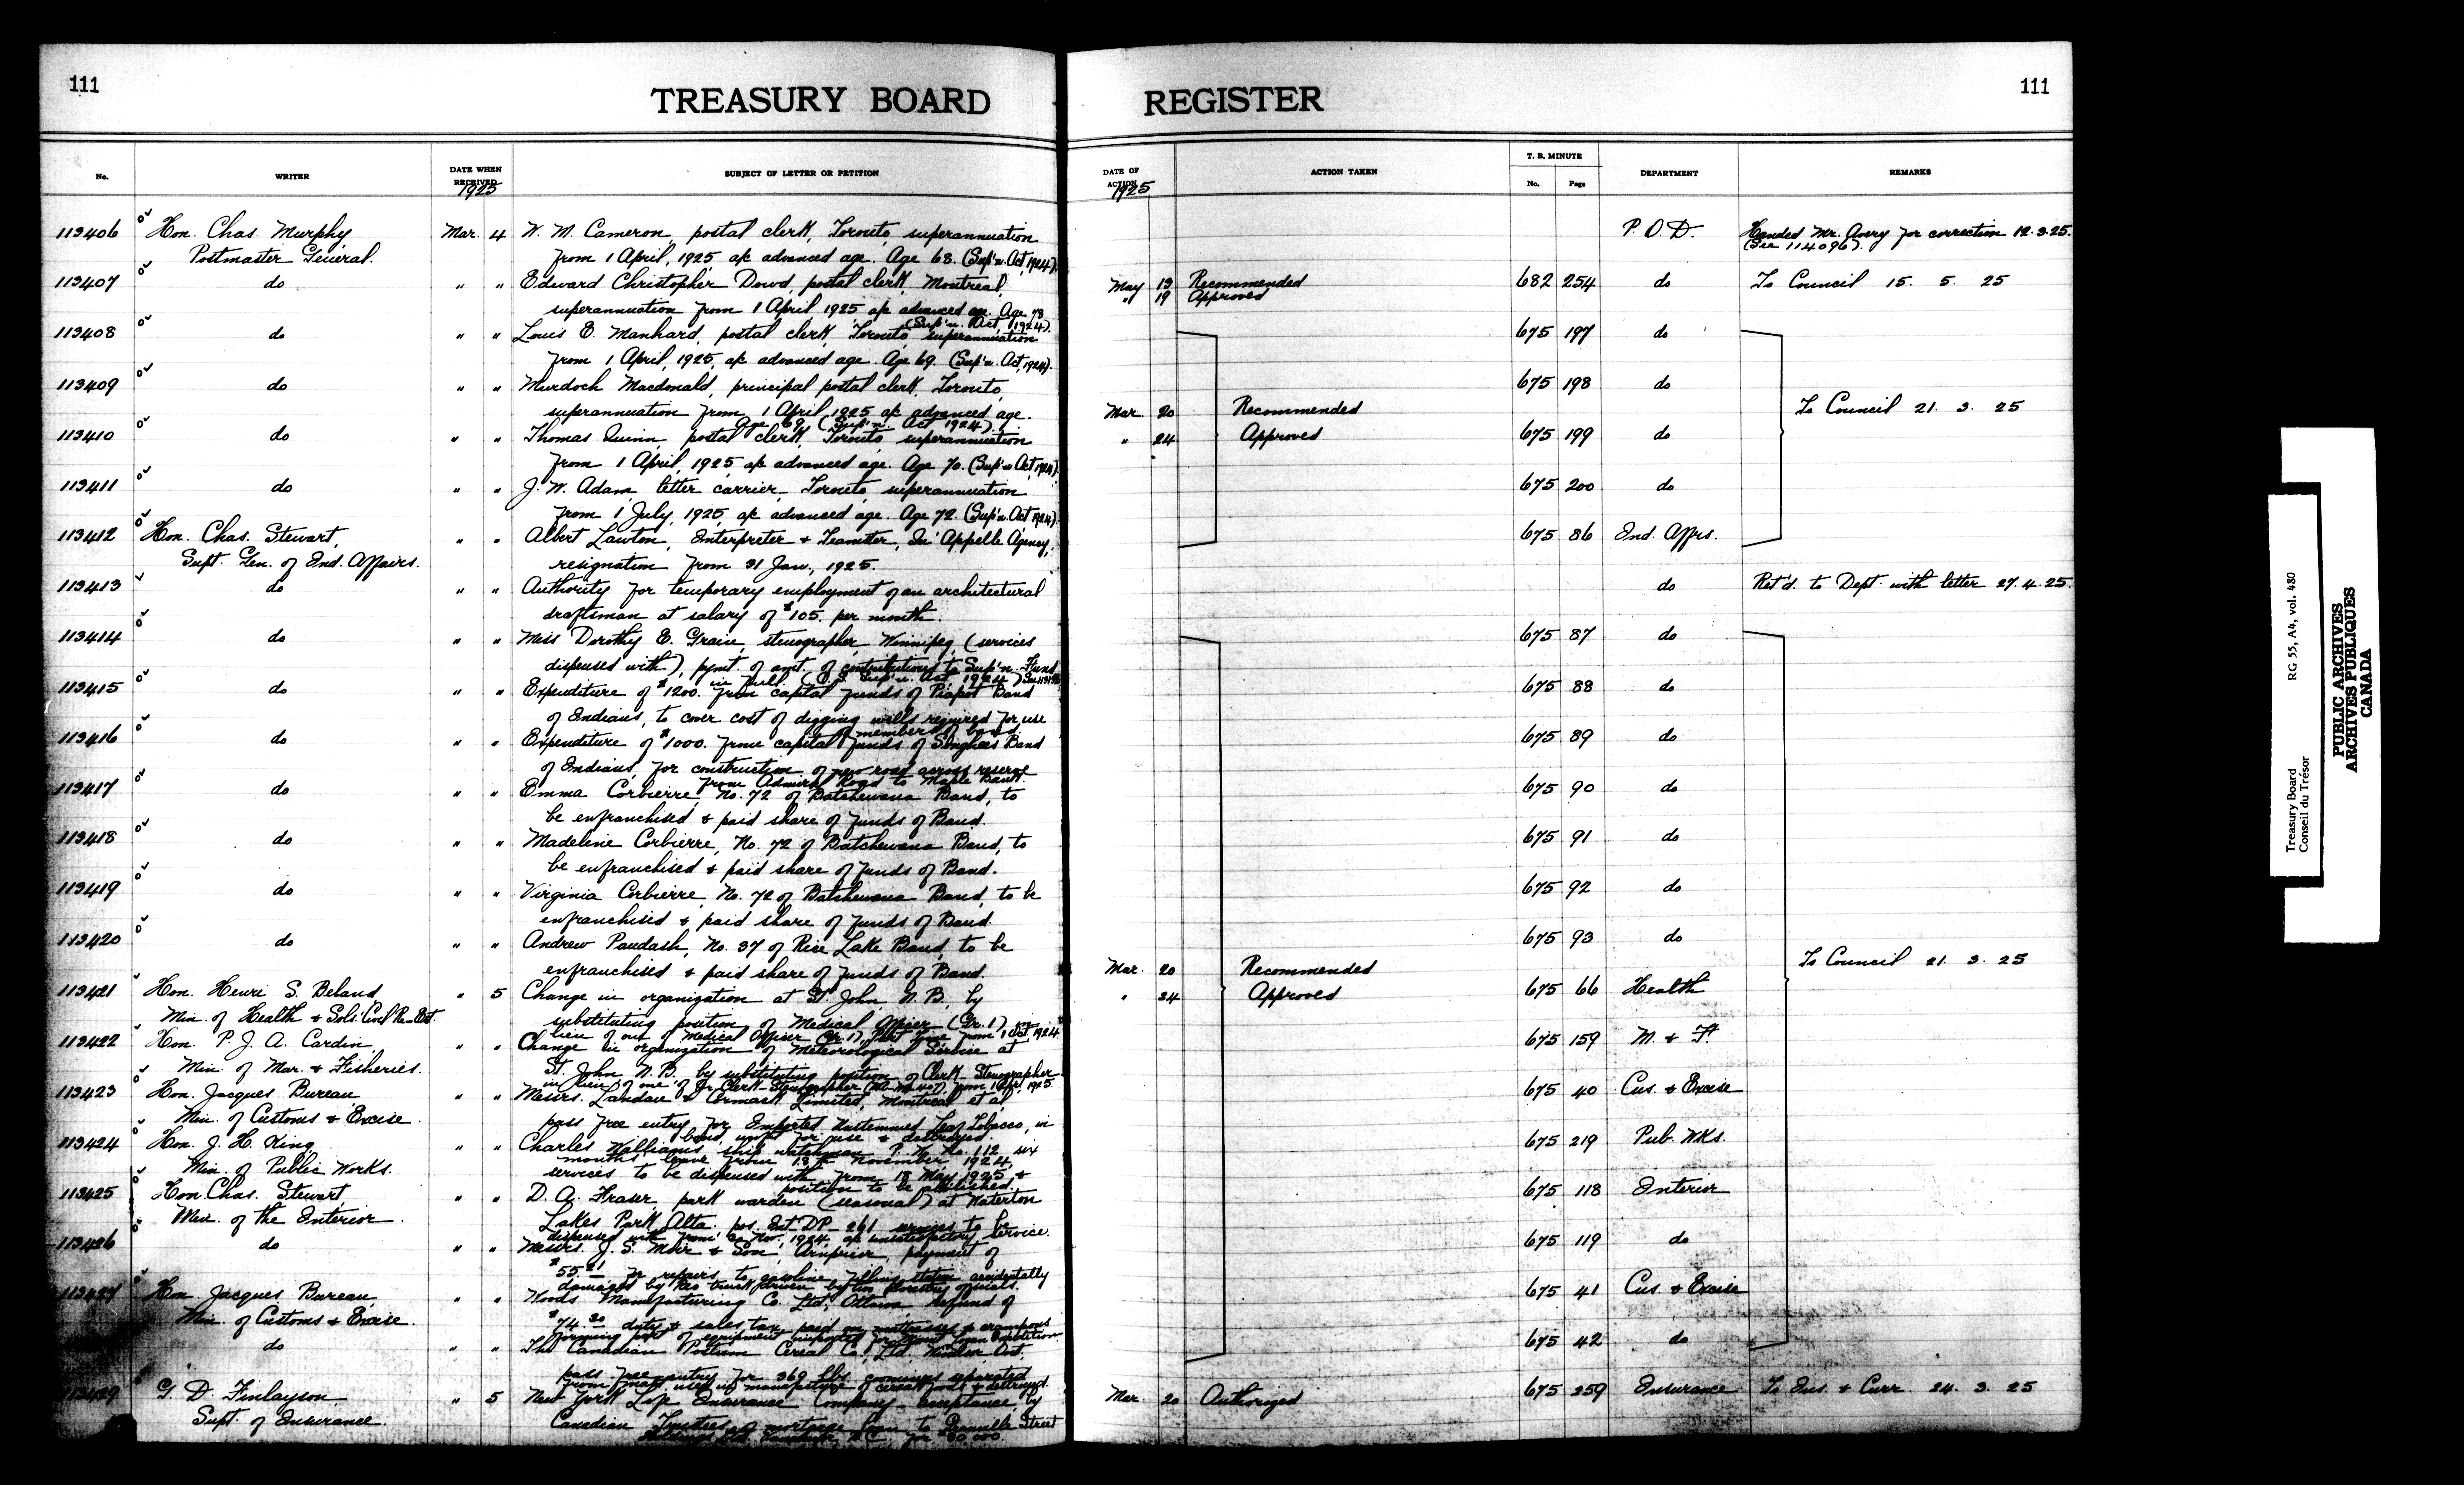 111
TREASURY BOARD REGISTER
111
No. WRITER DATE WHEN RECEIVED SUBJECT OF LETTER OR PETITION DATE OF ACTION ACTION TAKEN T. B. MINUTE No. Page DEPARTMENT REMARKS
1925 1925
113406 Hon. Chas. Murphy Mar. 4 W. M. Cameron, postal clerk, Toronto, superannuation P.O.D. Handed Mr. Avery for correction 12.3.25.
Postmaster General. from 1 April, 1925 a/c advanced age. Age 68. (Sup'n. Act, 1924) (See 114096).
113407 do " " Edward Christopher Dowd, postal clerk, Montreal, May 13 Recommended 682 254 do To Council 15. 5. 25
superannuation from 1 April, 1925 a/c advanced age. Age " 19 Approved
(Sup'n. Act, 1924).
113408 do " " Louis E. Manhard, postal clerk, Toronto superannuation 675 197 do
from 1 April, 1925, a/c advanced age. Age 69. (Sup'n. Act, 1924).
113409 do " " Murdoch Macdonald, principal postal clerk, Toronto, 675 198 do
superannuation from 1 April, 1925 a/c advanced age. Mar. 20 Recommended To Council 21. 3. 25
Age 69. (Sup'n. Act 1924).
113410 do " " Thomas Quinn, postal clerk, Toronto superannuation " 24 Approved 675 199 do
from 1 April, 1925, a/c advanced age. Age 70. (Sup'n Act, 1924).
113411 do " " J. W. Adam, letter carrier, Toronto, superannuation 675 200 do
from 1 July, 1925, a/c advanced age. Age 72. (Sup'n. Act 1924).
113412 Hon. Chas. Stewart, " " Albert Lawton, Interpreter & Teamster, Qu'Appelle Agency, 675 86 Ind. Affrs.
Supt. Gen. of Ind. Affairs. resignation from 31 Jan., 1925.
113413 do " " Authority for temporary employment of an architectural do Ret'd. to Dept. with letter 27.4.25.
draftsman at salary of $105. per month.
113414 do " " Miss Dorothy E. Grain, stenographer, Winnipeg, (services 675 87 do
dispensed with), pymt. of amt. of contributions to Sup'n. Fund
in full (C.S. Sup'n. Act 1924)
113415 do " " Expenditure of $1200. from capital funds of Piapot Band 675 88 do
of Indians, to cover cost of digging wells required for use
of members of band.
113416 do " " Expenditure of $1000. from capital funds of Songhees Band 675 89 do
of Indians, for construction of new road across reserve
from Admirals Road to Maple Bank.
113417 do " " Emma Corbierre, No. 72 of Batchewana Band, to 675 90 do
be enfranchised & paid share of funds of Band.
113418 do " " Madeline Corbierre, No. 72 of Batchewana Band, to 675 91 do
be enfranchised & paid share of funds of Band.
113419 do " " Virginia Corbierre, No. 72 of Batchewana Band, to be 675 92 do
enfranchised & paid share of funds of Band.
113420 do " " Andrew Paudash, No. 37 of Rice Lake Band, to be 675 93 do
enfranchised & paid share of funds of Band. Mar. 20 Recommended To Council 21. 3. 25
113421 Hon. Henri S. Beland, " 5 Change in organization at St. John N.B. by " 24 Approved 675 66 Health
Min. of Health & Sols. Civil Re-Est. substituting position of Medical Officer (Gr. 1)
lieu of one of Medical Officer (Gr. 1), Part Time from 1 Oct, 1924
113422 Hon. P. J. A. Cardin, " " Change in organization of Meteorological Service at 675 159 M. & F.
Min. of Mar. & Fisheries. St. John N.B. by substituting position of Clerk-Stenographer
in lieu of one of Jr. Clerk-Stenographer from 1 Apl. 1925
113423 Hon. Jacques Bureau, " " Messrs. Landau & Cormack Limited, Montreal et al, 675 40 Cus. & Excise
Min. of Customs & Excise. pass free entry for Imported Unstemmed Leaf Tobacco, in
bond, unfit for use & destroyed.
113424 Hon. J. H. King, " " Charles Williams ship watchman, P. W. No. 112, six 675 219 Pub. Wks.
Min. of Public Works. months leave from 18th November, 1924,
services to be dispensed with from 18 May, 1925 &
position to be abolished.
113425 Hon. Chas. Stewart, " " D. A. Fraser, park warden (seasonal) at Waterton 675 118 Interior
Min. of the Interior. Lakes Park, Alta. pos. Int. DP-261 services to be
dispensed with from Nov. 1924, a/c unsatisfactory service.
113426 do " " Messrs. J. S. Moir & Son, Arnprior, payment of 675 119 do
for repairs to gasoline filling station accidentally
damaged by truck driven by officers.
113427 Hon. Jacques Bureau, " " Woods Manufacturing Co. Ltd. Ottawa refund of 675 41 Cus. & Excise
Min. of Customs & Excise. $74.30 duty & sales tax paid on mattresses & crampons
forming part of equipment imported for Mount Logan Expedition
do " " The Canadian Postum Cereal Co., Ltd. Windsor, Ont. 675 42 do
pass free entry for 369 lbs. screenings separated
from used in manufacture of cereal foods & destroyed.
113429 G. D. Finlayson, " 5 New York Life Insurance Company - acceptance by Mar. 20 Authorized 675 259 Insurance To Ins. & Curr. 24. 3. 25
Supt. of Insurance. Canadian Trustees of mortgage loan to Granville Street
RG 55, A4, vol. 480
Treasury Board
Conseil du Trésor
PUBLIC ARCHIVES
ARCHIVES PUBLIQUES
CANADA